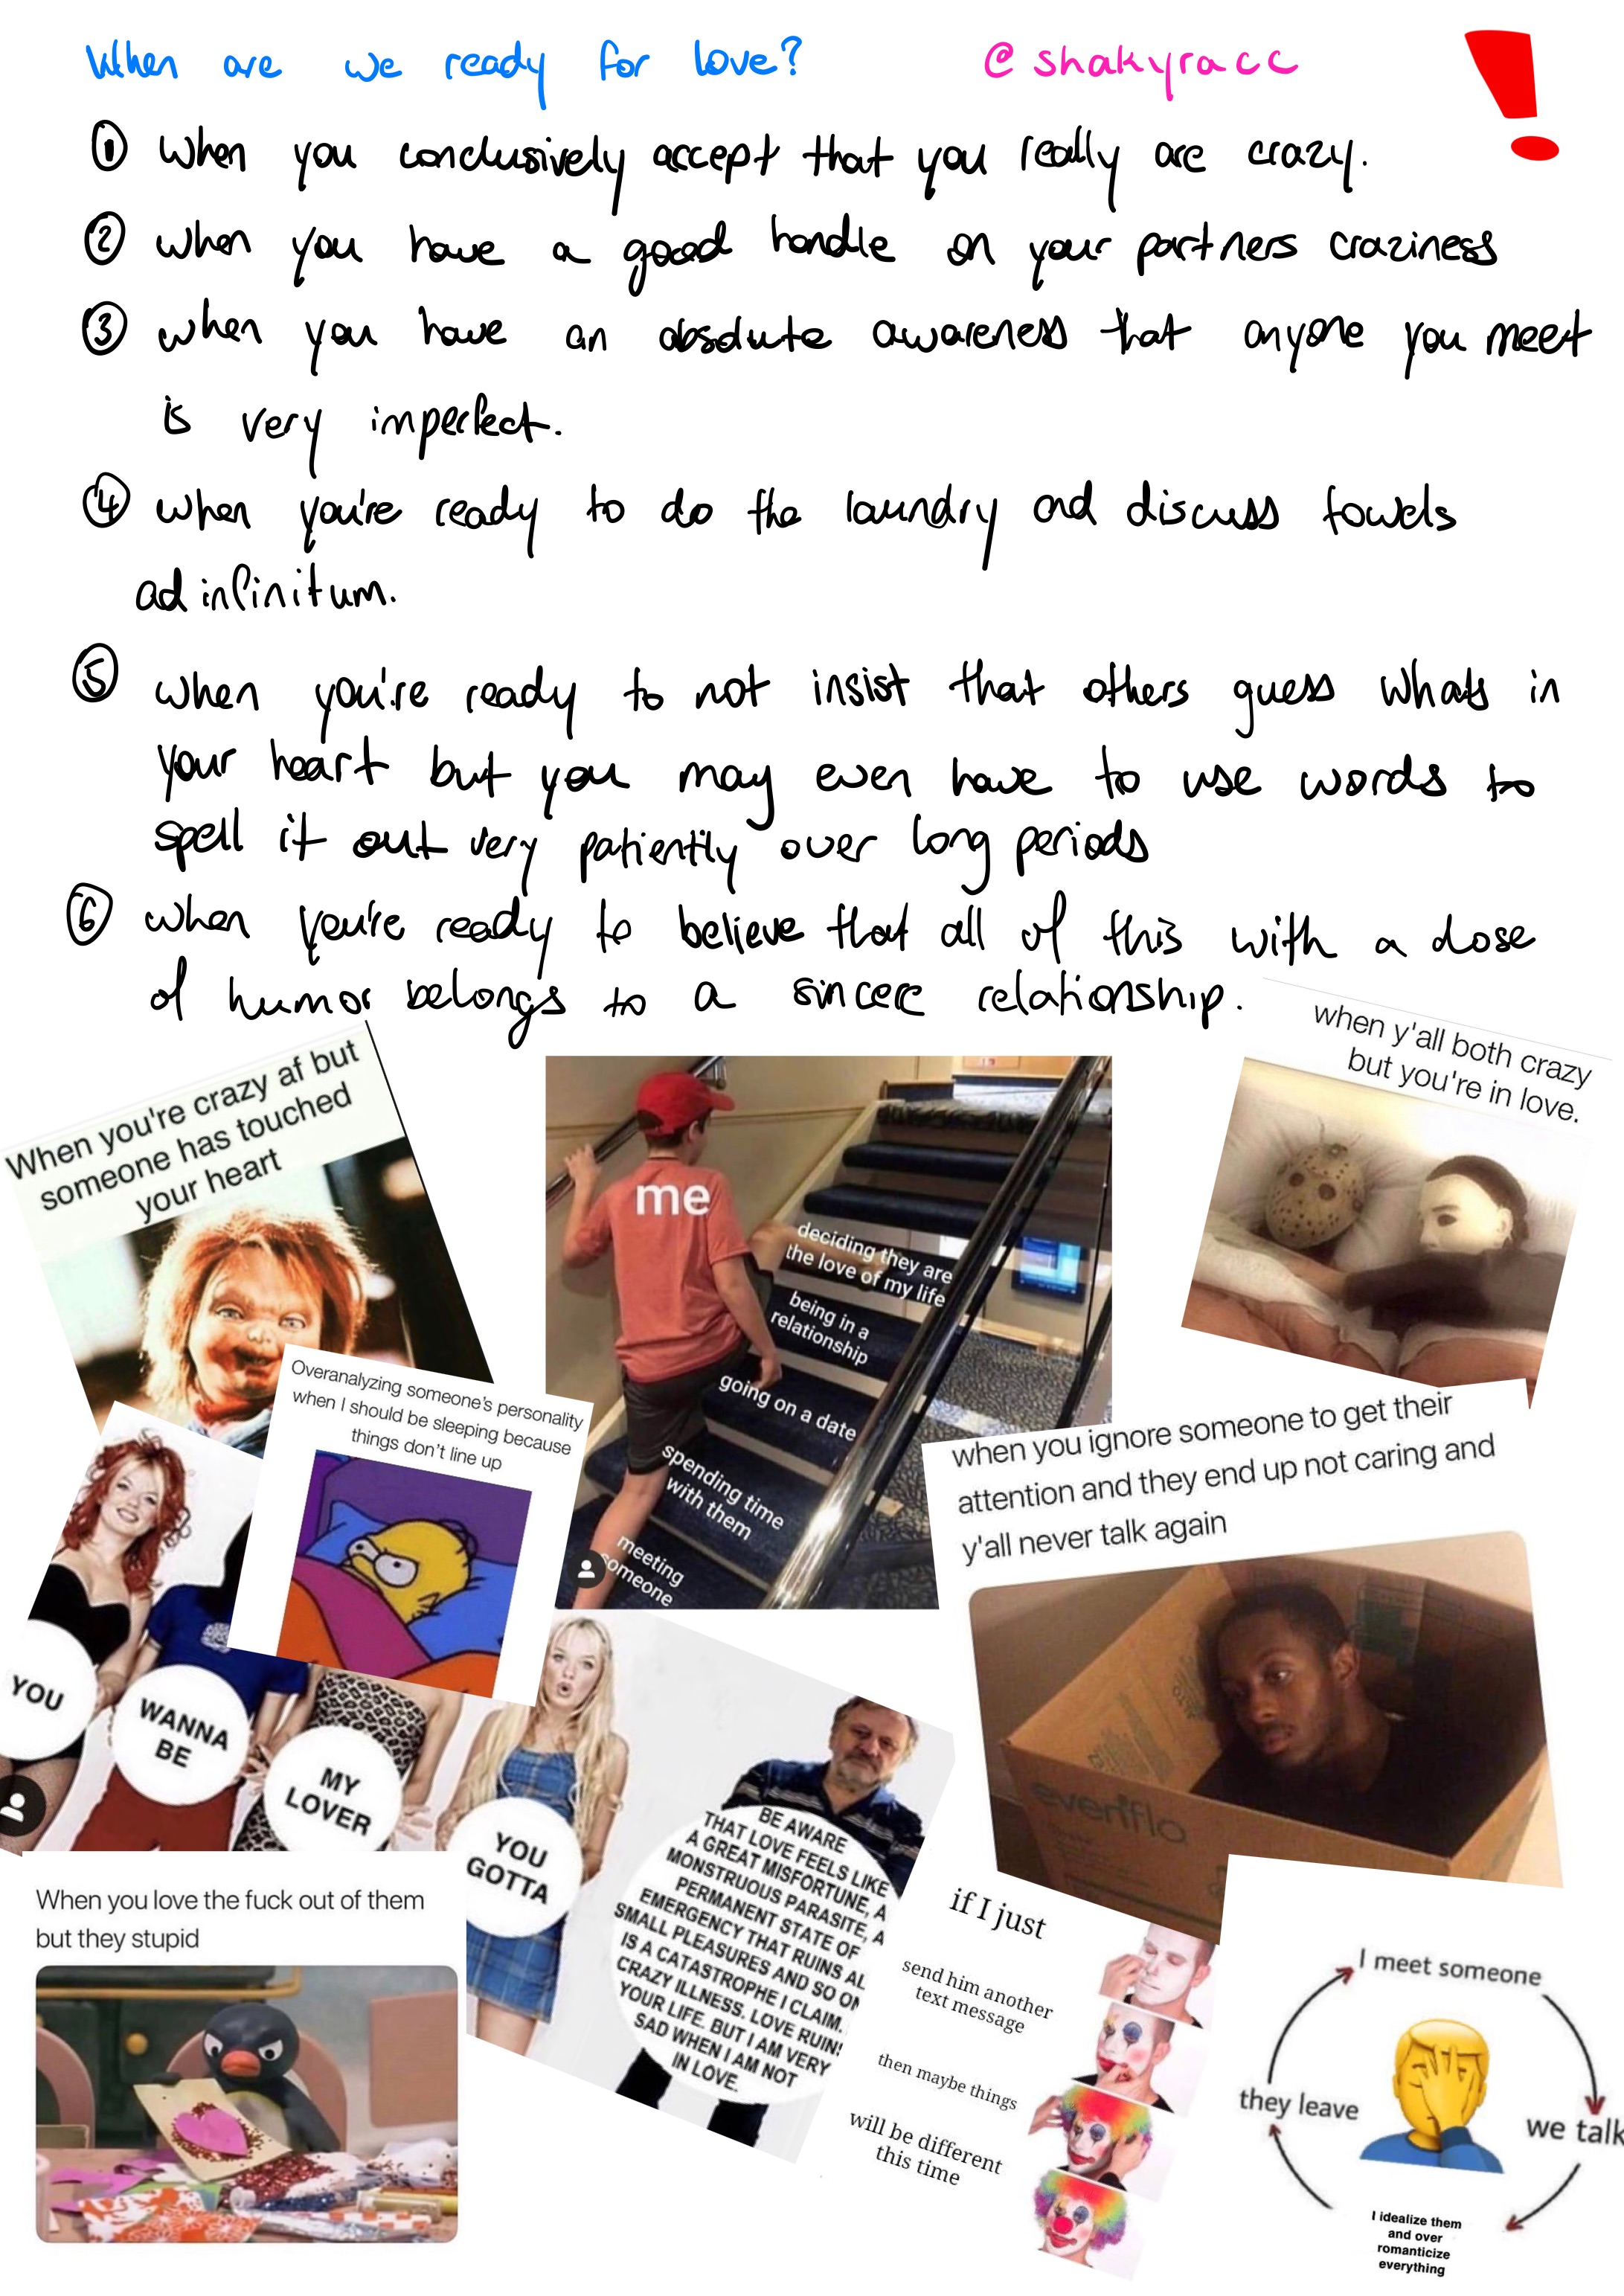 When are we ready for love? @shakyracc
① when you conclusively accept that you really are crazy.
② when you have a good handle on your partners craziness
③ when you have an absolute awareness that anyone you meet
is very imperfect.
④ when you're ready to do the laundry and discuss towels
ad infinitum.
⑤ when you're ready to not insist that others guess whats in
your heart but you may even have to use words to
spell it out very patiently over long periods
⑥ when you're ready to believe that all of this with a dose
of humor belongs to a sincere relationship.
When you're crazy af but
someone has touched
your heart
me
deciding they are
the love of my life
being in a
relationship
going on a date
spending time
with them
meeting
someone
when y'all both crazy
but you're in love.
Overanalyzing someone's personality
when I should be sleeping because
things don't line up
when you ignore someone to get their
attention and they end up not caring and
y'all never talk again
everflo
YOU
WANNA
BE
MY
LOVER
YOU
GOTTA
BE AWARE
THAT LOVE FEELS LIKE
A GREAT MISFORTUNE, A
MONSTRUOUS PARASITE, A
PERMANENT STATE OF
EMERGENCY THAT RUINS AL
SMALL PLEASURES AND SO ON
IS A CATASTROPHE I CLAIM.
CRAZY ILLNESS. LOVE RUINS
YOUR LIFE. BUT I AM VERY
SAD WHEN I AM NOT
IN LOVE.
When you love the fuck out of them
but they stupid
if I just
send him another
text message
then maybe things
will be different
this time
I meet someone
we talk
I idealize them
and over
romanticize
everything
they leave